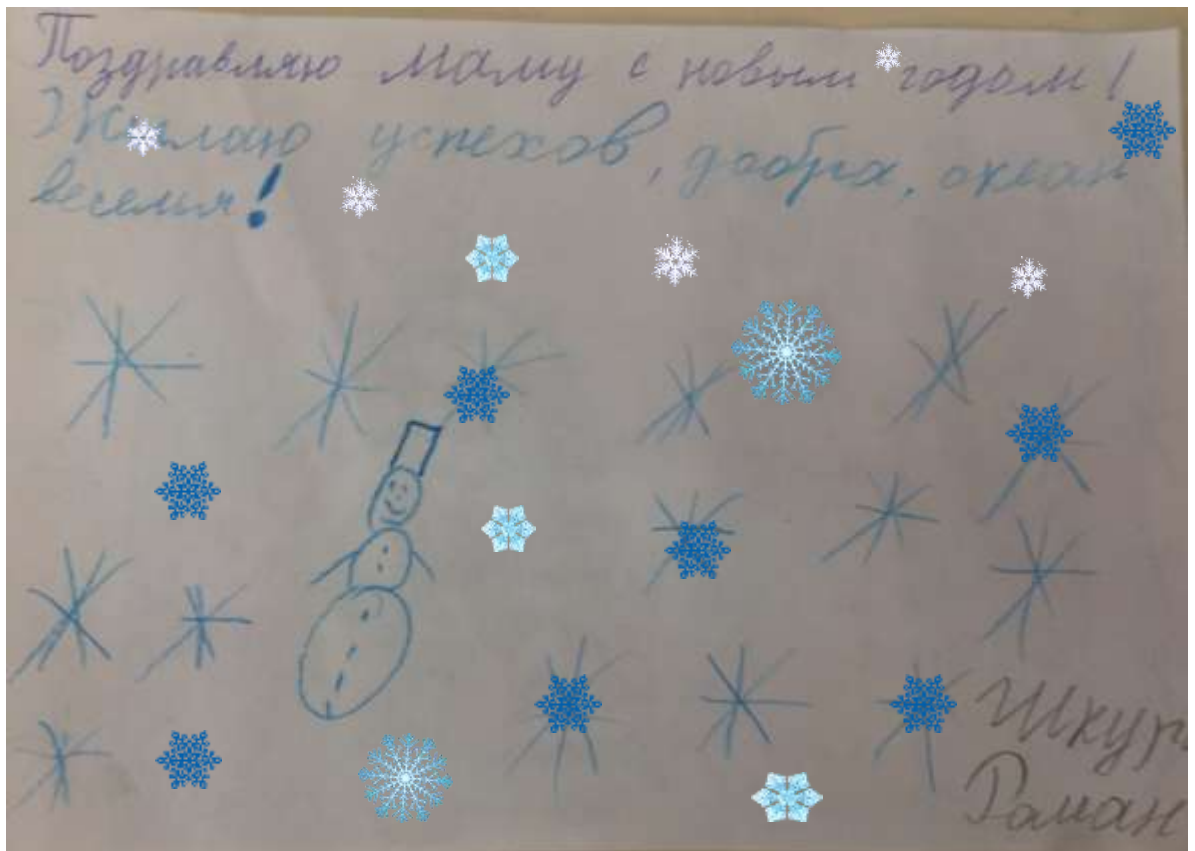 Поздравляю маму с новым годом!
Желаю успехов, добра, океан
веселья!
Шкур
Роман